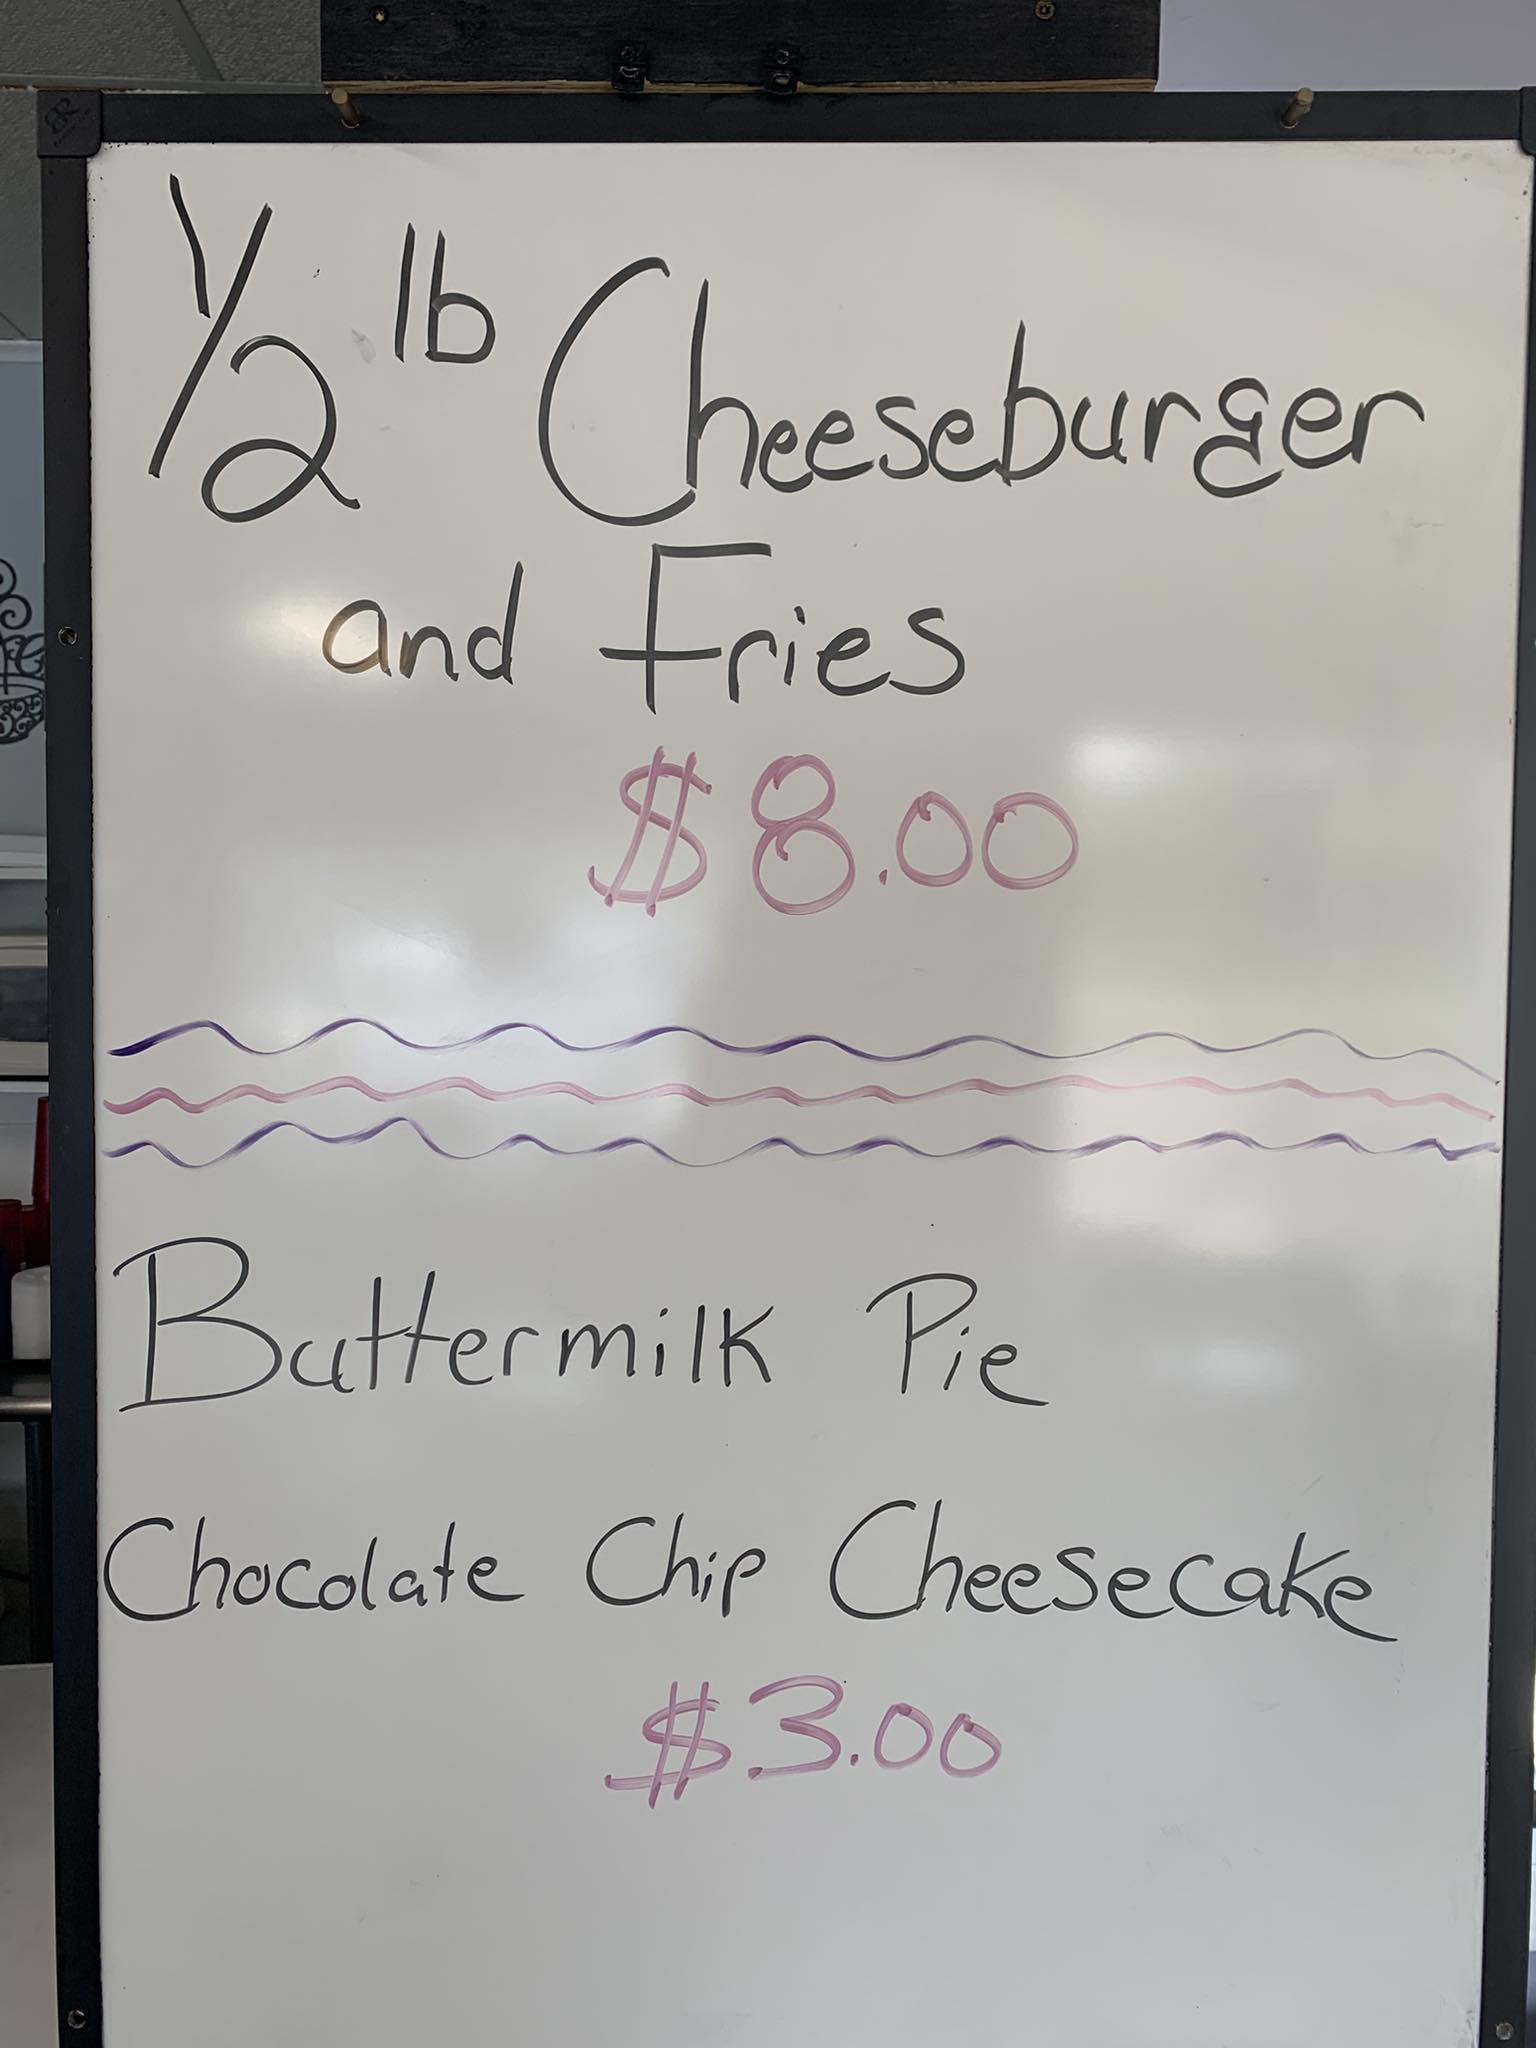 1/2 lb Cheeseburger
and Fries
$8.00
Buttermilk Pie
Chocolate Chip Cheesecake
$3.00